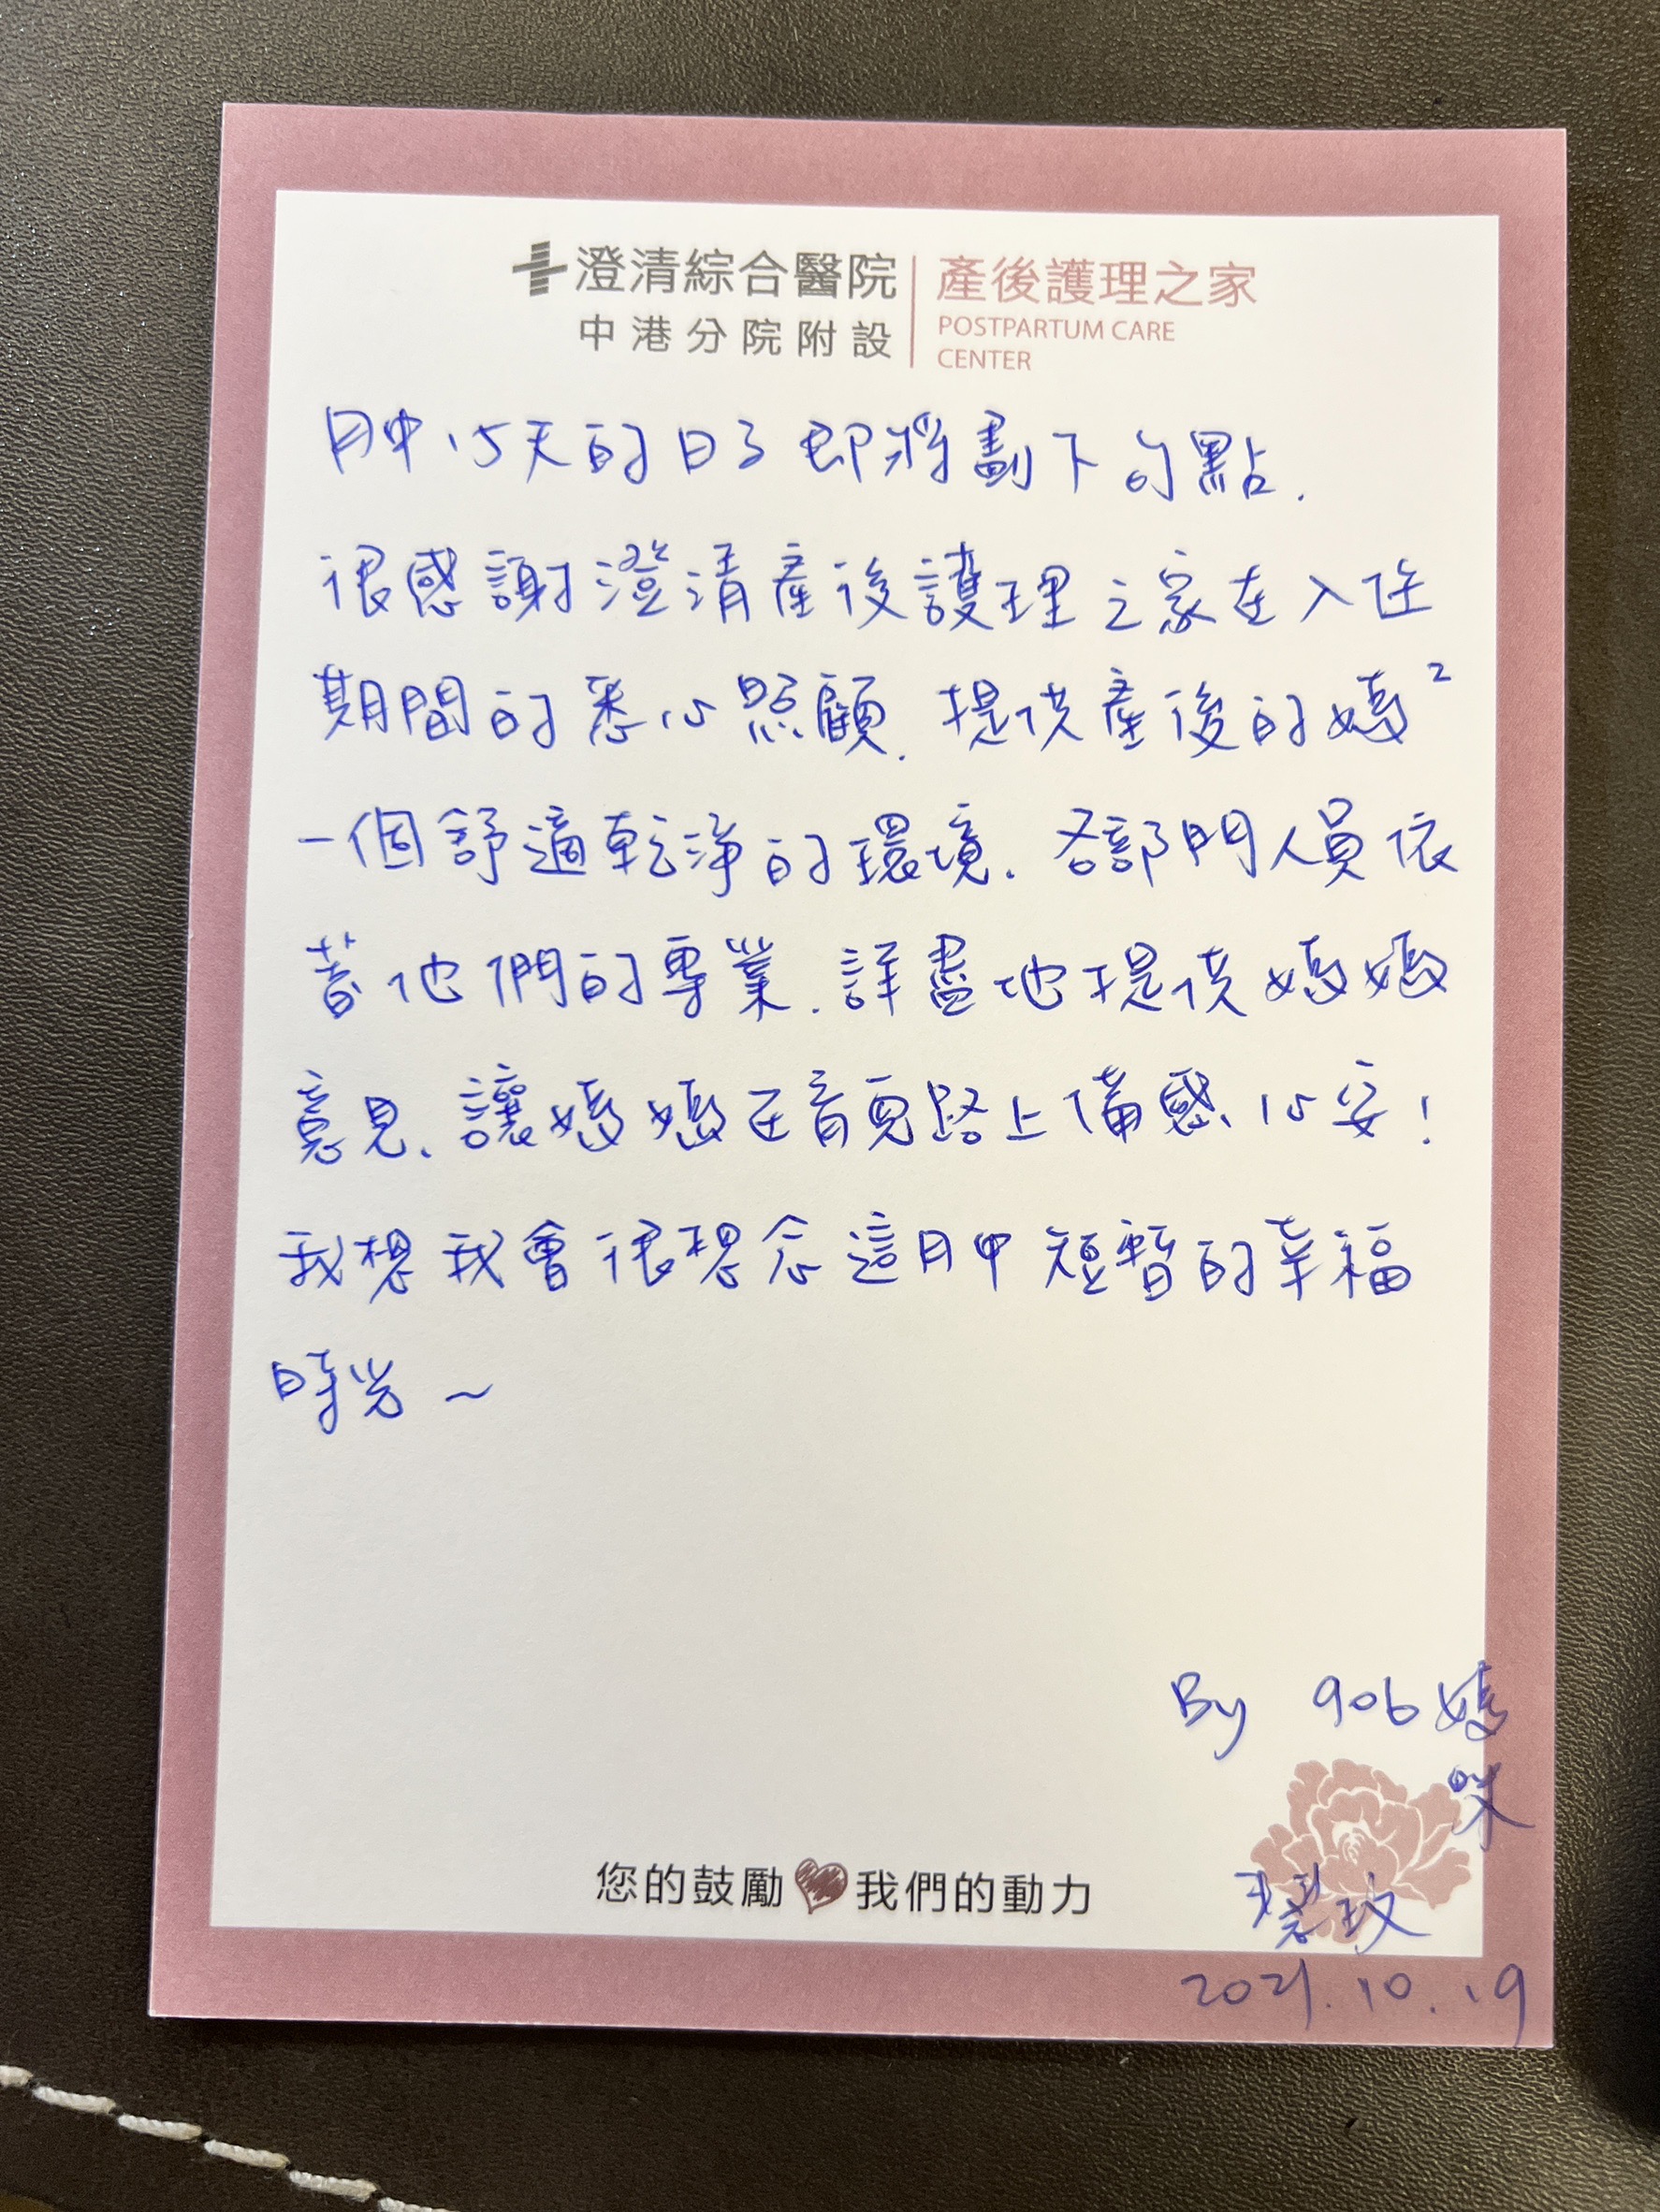 澄清綜合醫院
中港分院附設
產後護理之家
POSTPARTUM CARE
CENTER
月中15天的日子即將劃下句點.
很感謝澄清產後護理之家在入住
期間的悉心照顧.提供產後的媽²
一個舒適乾淨的環境.各部門人員依
著他們的專業.詳盡地提供媽媽
意見、讓媽媽在育兒路上備感心安!
我想我會很想念這月中短暫的幸福
時光~
By 906媽
咪
慧玟
2021.10.19
您的鼓勵 我們的動力